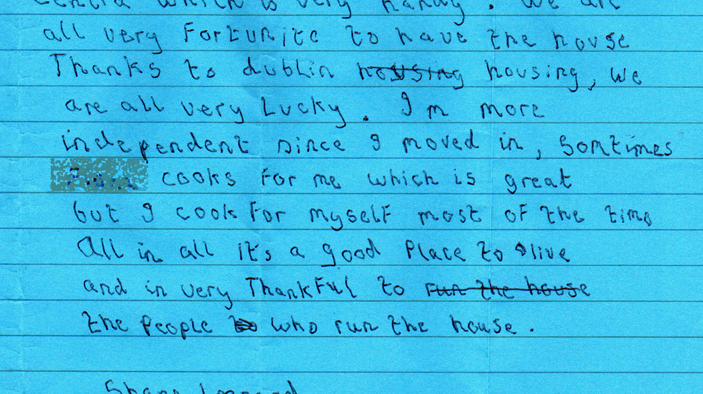 central which is very handy. We are
all very fortunite to have the house
Thanks to dublin housing housing, we
are all very Lucky. I m more
independent since I moved in, somtimes
cooks for me which is great
but I cook for myself most of the time
All in all it's a good Place to live
and in very ThankFul to run the house
the people to who run the house.